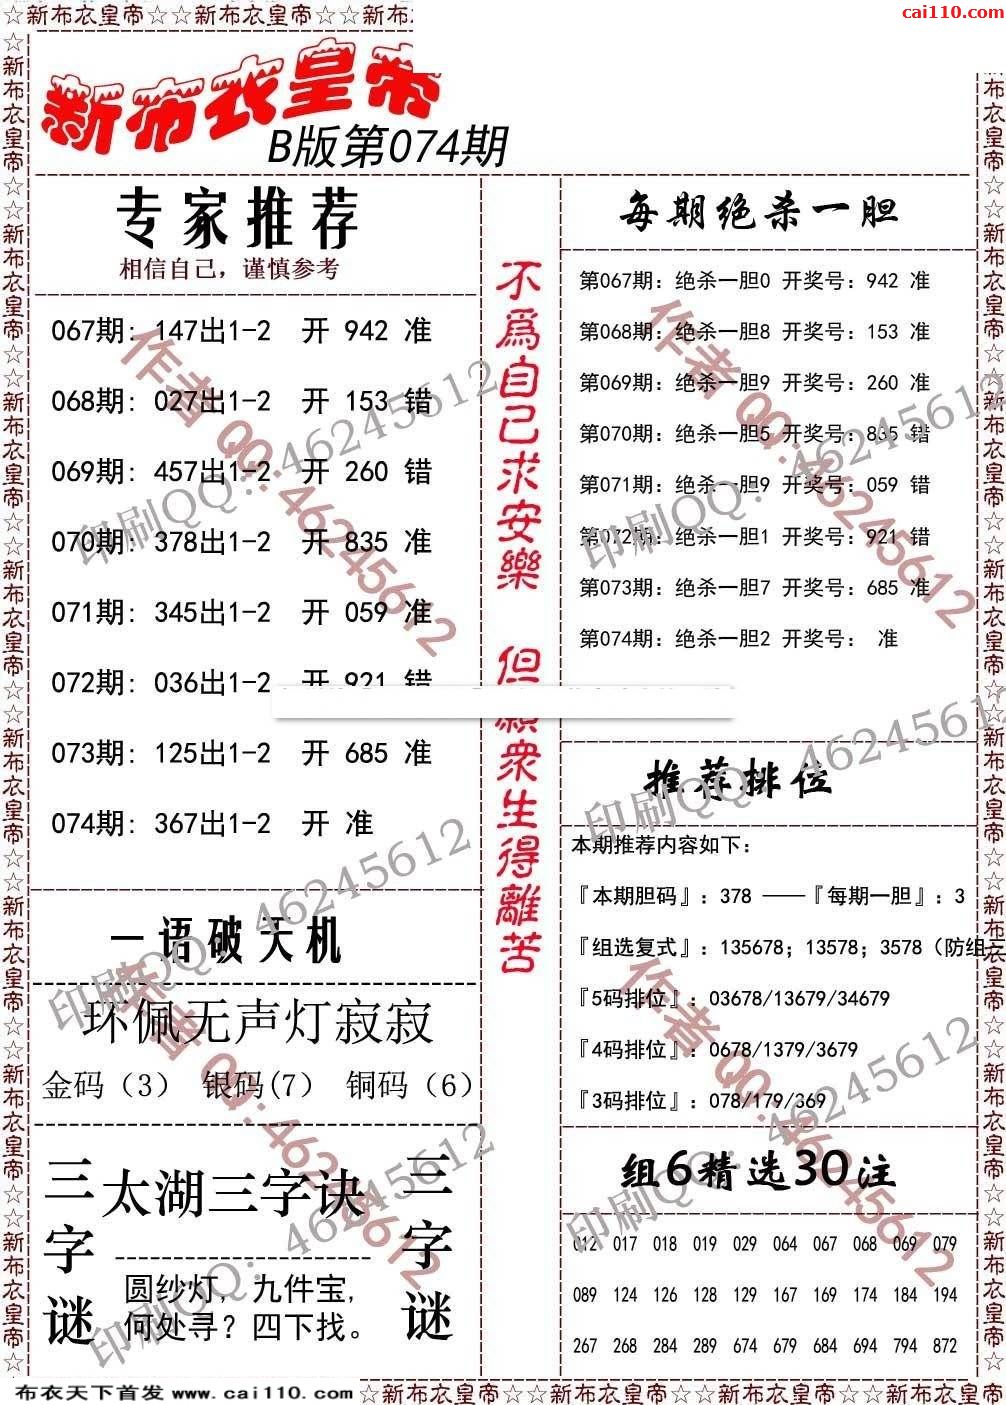 ☆新布衣皇帝☆☆新布衣皇帝☆☆新布衣
cai110.com
新布衣皇帝
B版第074期
专家推荐
相信自己，谨慎参考
067期: 147出1-2 开 942 准
068期: 027出1-2 开 153 错
069期: 457出1-2 开 260 错
070期: 378出1-2 开 835 准
071期: 345出1-2 开 059 准
072期: 036出1-2 开 921 错
073期: 125出1-2 开 685 准
074期: 367出1-2 开 准
一语破天机
环佩无声灯寂寂
金码（3） 银码(7) 铜码（6）
三字谜
太湖三字诀
圆纱灯，九件宝,
何处寻？四下找。
三字谜
不為自己求安樂 但願衆生得離苦
每期绝杀一胆
第067期: 绝杀一胆0 开奖号: 942 准
第068期: 绝杀一胆8 开奖号: 153 准
第069期: 绝杀一胆9 开奖号: 260 准
第070期: 绝杀一胆5 开奖号: 835 错
第071期: 绝杀一胆9 开奖号: 059 错
第072期: 绝杀一胆1 开奖号: 921 错
第073期: 绝杀一胆7 开奖号: 685 准
第074期: 绝杀一胆2 开奖号: 准
推荐排位
本期推荐内容如下:
『本期胆码』: 378 ——『每期一胆』: 3
『组选复式』: 135678; 13578; 3578（防组三
『5码排位』: 03678/13679/34679
『4码排位』: 0678/1379/3679
『3码排位』: 078/179/369
组6精选30注
012 017 018 019 029 064 067 068 069 079
089 124 126 128 129 167 169 174 184 194
267 268 284 289 674 679 684 694 794 872
作者QQ:46245612
印刷QQ: 46245612
作者QQ:46245612
印刷QQ: 46245612
印刷QQ: 46245612
印刷QQ: 46245612
作者QQ:46245612
作者QQ:46245612
印刷QQ: 46245612
印刷QQ: 46245612
布衣天下首发 www.cai110.com
☆新布衣皇帝☆☆新布衣皇帝☆☆新布衣皇帝☆☆新布衣皇帝☆